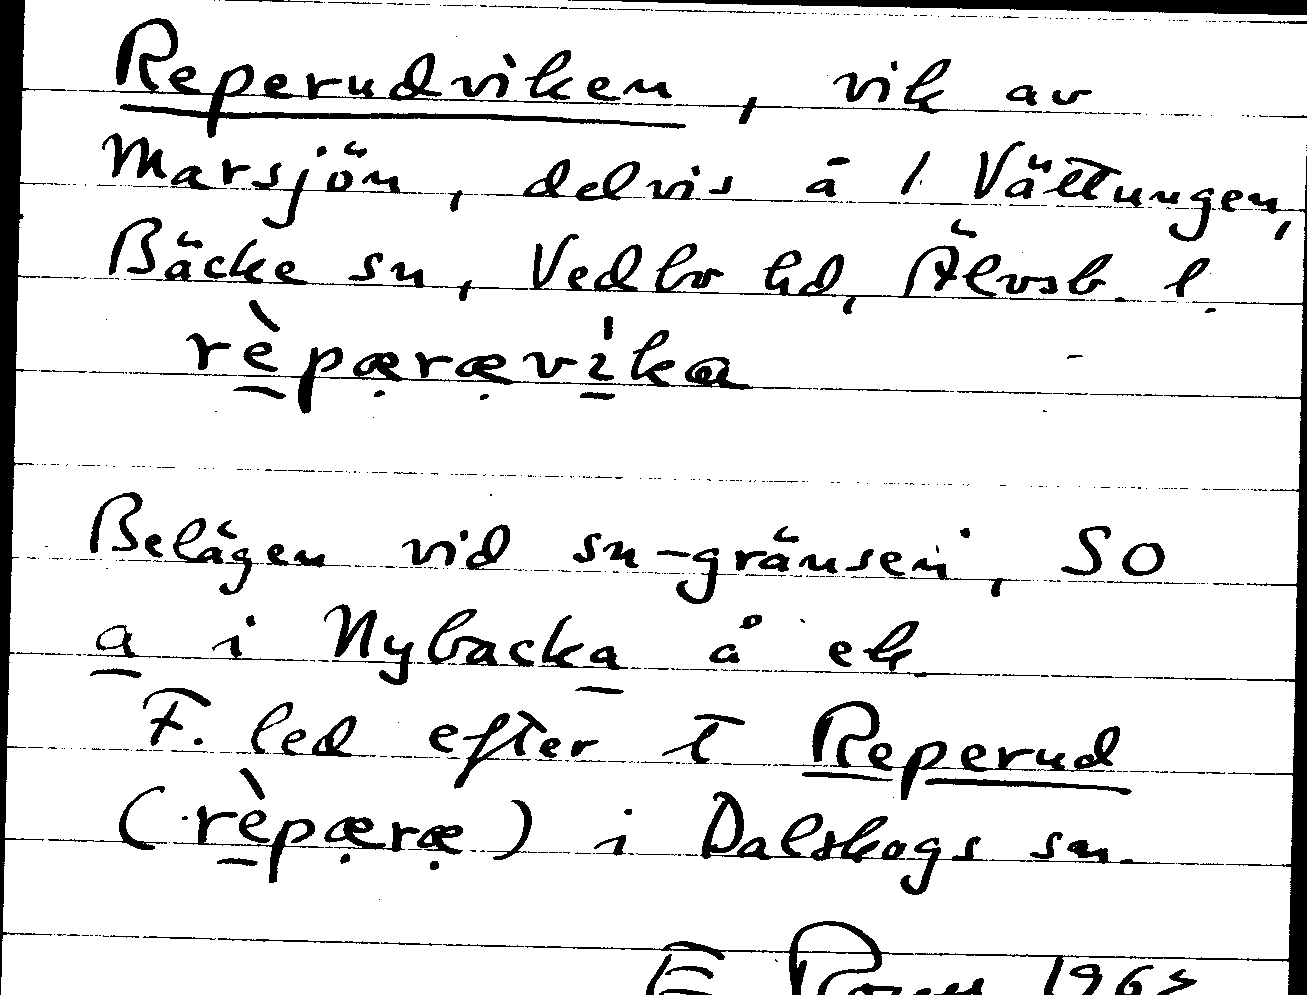 Reperudviken, vik av
Marsjön, delvis å 1 Vättungen,
Bäcke sn, Vedbo hd, Älvsb. l.
rèpærævi̍ka
Belägen vid sn-gränsen, SO
a i Nybacka å ek.
F. led efter t Reperud
(rèpæræ) i Dalskogs sn.
E 196